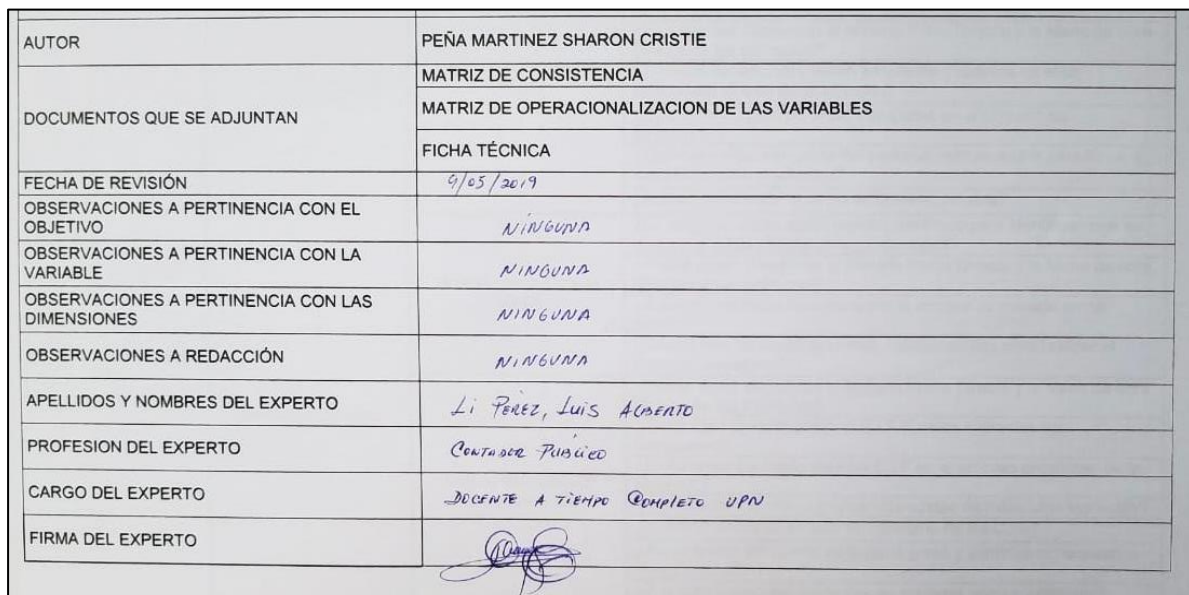 AUTOR
PEÑA MARTINEZ SHARON CRISTIE
DOCUMENTOS QUE SE ADJUNTAN
MATRIZ DE CONSISTENCIA
MATRIZ DE OPERACIONALIZACION DE LAS VARIABLES
FICHA TÉCNICA
FECHA DE REVISIÓN
9/05/2019
OBSERVACIONES A PERTINENCIA CON EL
OBJETIVO
NINGUNA
OBSERVACIONES A PERTINENCIA CON LA
VARIABLE
NINGUNA
OBSERVACIONES A PERTINENCIA CON LAS
DIMENSIONES
NINGUNA
OBSERVACIONES A REDACCIÓN
NINGUNA
APELLIDOS Y NOMBRES DEL EXPERTO
Li PEREZ, Luis ALBERTO
PROFESION DEL EXPERTO
CONTADOR PÚBLICO
CARGO DEL EXPERTO
DOCENTE A TIEMPO COMPLETO UPN
FIRMA DEL EXPERTO